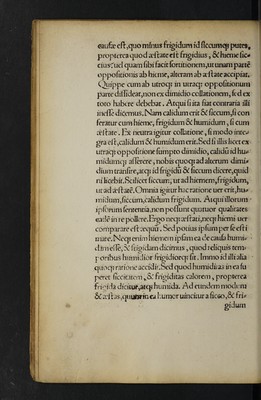 causæ est, quo minus frigidum id siccumq; putes,
propterea quod æstate est frigidius, & hieme sic-
cius: uel quam sibi facit sortitionem, ut unam partē
oppositionis ab hieme, alteram ab æstate accipiat.
Quippe cum ab utroq; in utraq; oppositionum
parte dissideat, non ex dimidio collationem, sed ex
toto habere debebat. Atqui si ita fiat contraria illi
inesse dicemus. Nam calidum erit & siccum, si con
feratur cum hieme, frigidum & humidum, si cum
æstate. Ex neutra igitur collatione, si modo inte-
gra est, calidum & humidum erit. Sed si illis licet ex
utraq; oppositione sumpto dimidio, calidū id hu-
midumq; asserere, nobis quoq; ad alterum dimi-
dium transire, atq; id frigidū & siccum dicere, quid
ni licebit. Scilicet siccum, ut ad hiemem, frigidum,
ut ad æstatē. Omnia igitur hac ratione uer erit, hu-
midum, siccum, calidum frigidum. At qui illorum
ipsorum sententia, non possunt quatuor qualitates
eadē in re pollere. Ergo neq; æstati, neq; hiemi uer
comparare est æquū. Sed potius ipsum per se esti
mare. Neq; enim hiemem ipsam ea de causa humi-
dam esse, & frigidam dicimus, quod reliquis tem-
poribus humidior frigidiorq; sit. Immo id illi alia
quoq; ratione accidit. Sed quod humiditas in ea su
peret siccitatem, & frigiditas calorem, propterea
frigida dicitur, atq; humida. Ad eundem modum
& æstas, quum in ea humor uincitur a sicco, & fri-
gidum